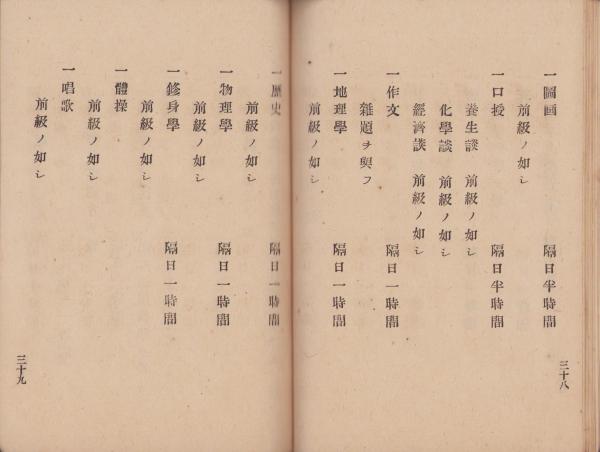 一圖画 隔日半時間
前級ノ如シ
一口授 隔日半時間
養生談 前級ノ如シ
化學談 前級ノ如シ
經濟談 前級ノ如シ
一作文 隔日一時間
雜題ヲ與フ
一地理學 隔日一時間
前級ノ如シ
三十八
一歴史 隔日一時間
前級ノ如シ
一物理學 隔日一時間
前級ノ如シ
一修身學 隔日一時間
前級ノ如シ
一體操
前級ノ如シ
一唱歌
前級ノ如シ
三十九